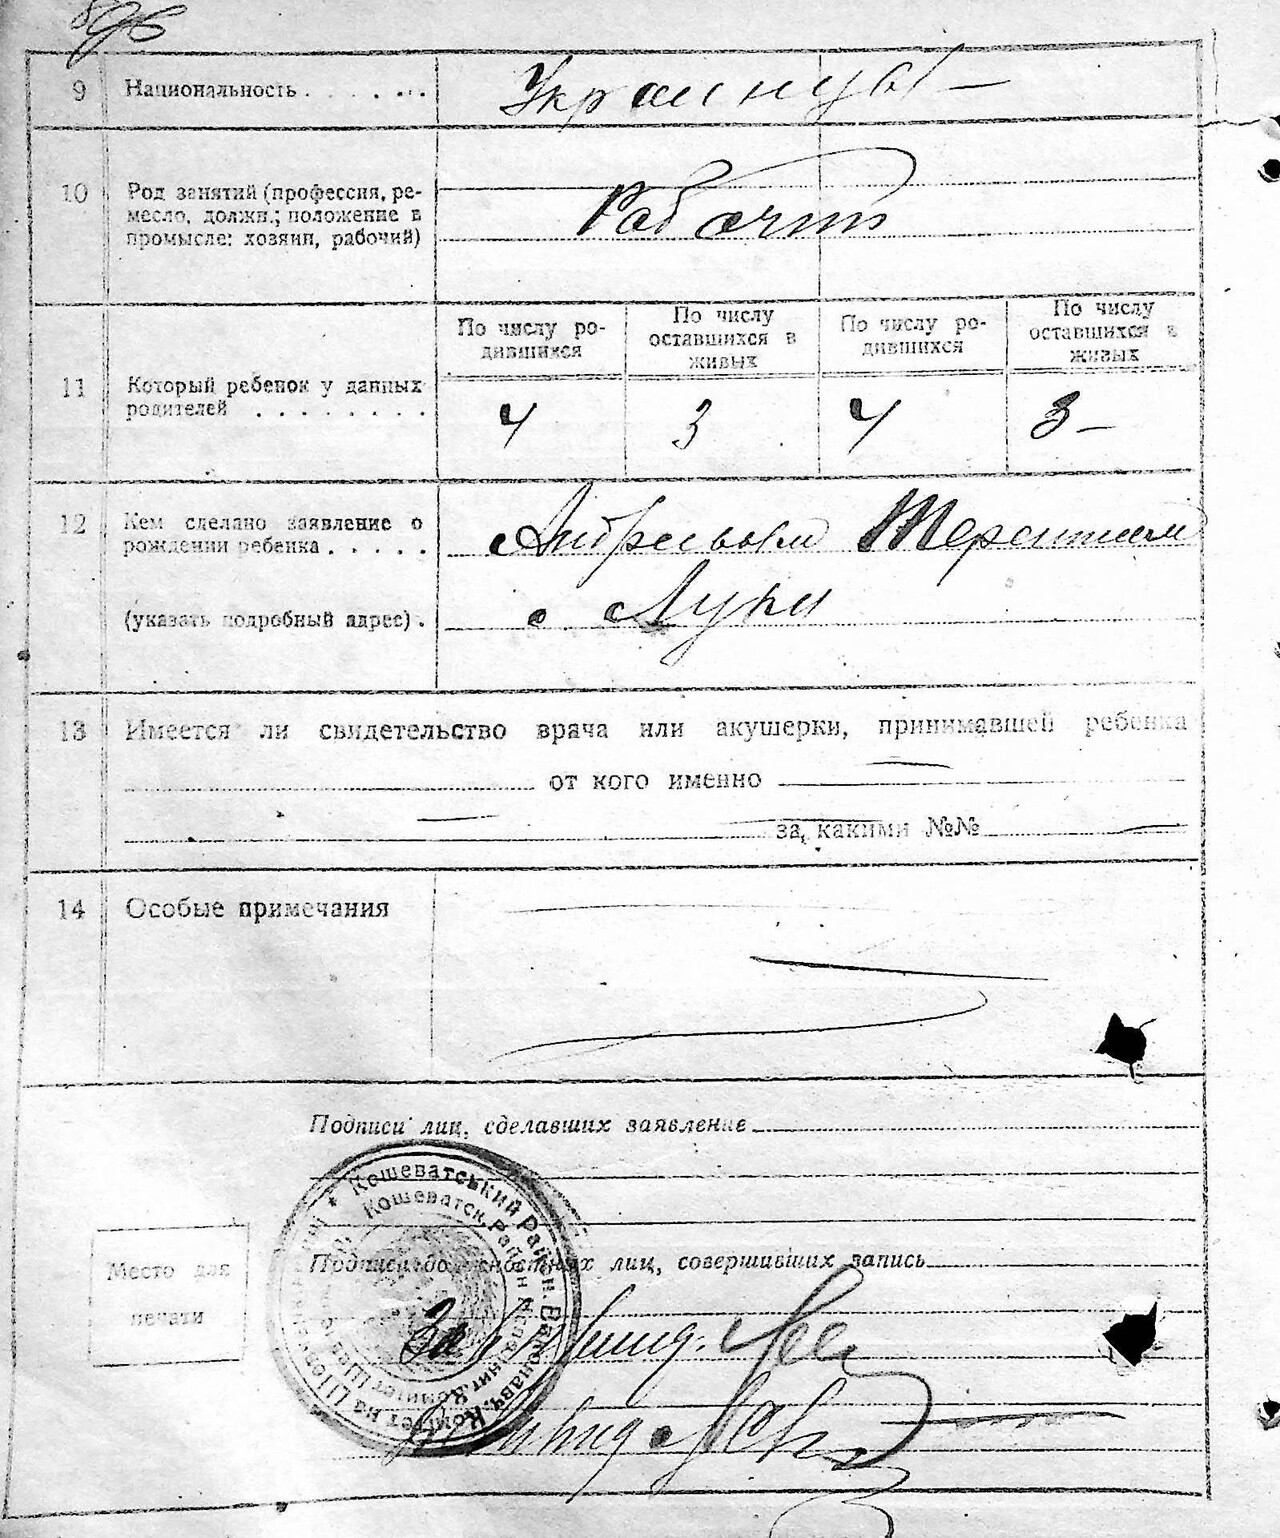 9 Национальность . . . . . . . Украинцы –
10 Род занятий (профессия, ре-
месло, должн.; положение в
промысле: хозяин, рабочий)
Рабочий
По числу ро-
дившихся
По числу
оставшихся в
живых
По числу ро-
дившихся
По числу
оставшихся в
живых
11 Который ребенок у данных
родителей . . . . . . . .
4 3 4 3 –
12 Кем сделано заявление о
рождении ребенка . . . . .
Андреевым Терентием
(указать подробный адрес) . с Луки
13 Имеется ли свидетельство врача или акушерки, принимавшей ребенка
от кого именно
за какими №№
14 Особые примечания
Подписи лиц, сделавших заявление
* Кошеватський Район. Виконавч. Комітет на
Кошеватск. Район Исполнит. Комитет
Место для
печати
Подписи должностных лиц, совершивших запись